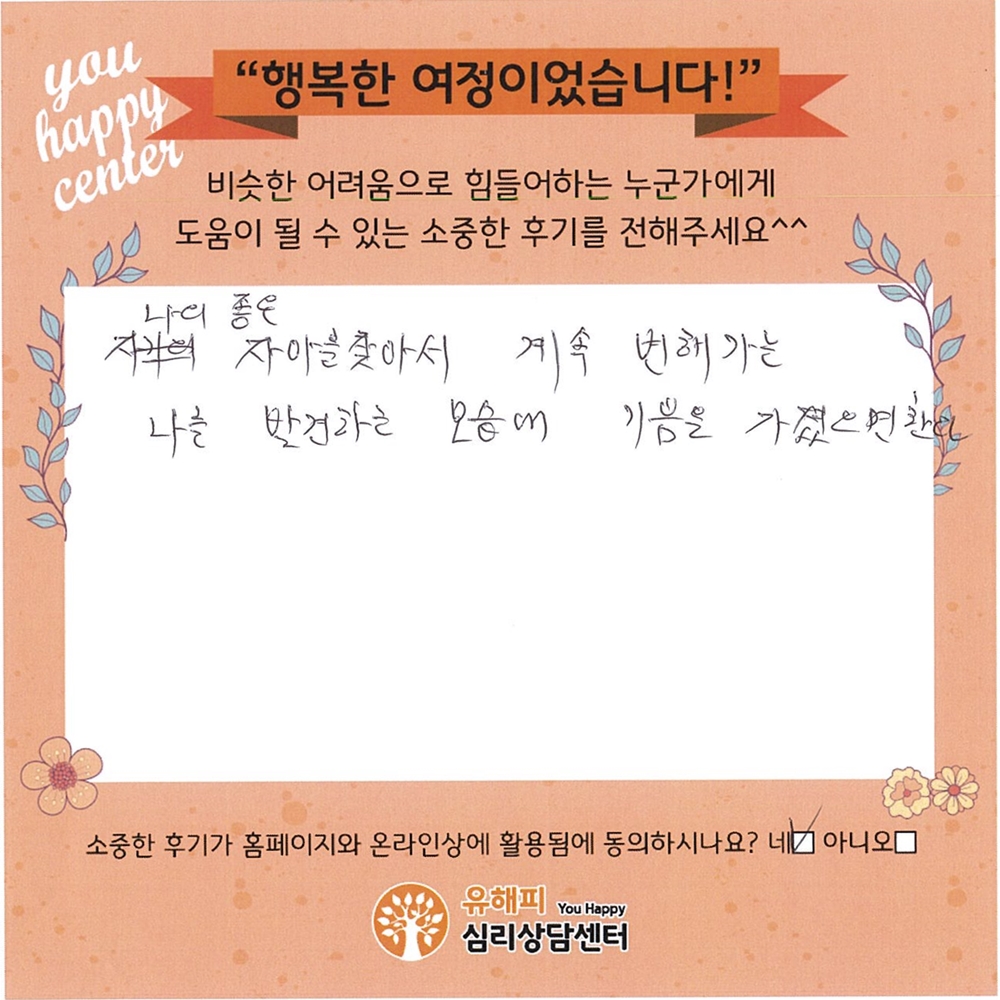 you
happy
center
“행복한 여정이었습니다!”
비슷한 어려움으로 힘들어하는 누군가에게
도움이 될 수 있는 소중한 후기를 전해주세요^^
나의 좋은
자아를찾아서 계속 변해가는
나를 발견하는 모습에 기쁨을 가졌으면한다
소중한 후기가 홈페이지와 온라인상에 활용됨에 동의하시나요? 네 아니오
유해피 You Happy
심리상담센터